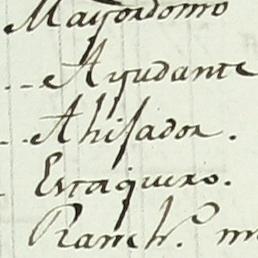 Mayordomo
Ayudante
Ahisador.
Estaquero.
Ranch.º m